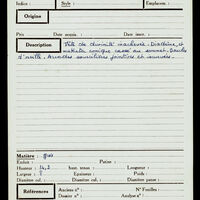 Indice : Style : Emplacem. :
Origine :
Prix : Date acquis. : Date inser. :
Description
Tête de divinité inachevée. Diadème et
mukuta conique cassé au sommet. Boucles
d'oreille. Arcades sourcilières jointives et incurvées.
Matière : grès
Enduit : Patine :
Hauteur : 14,5 haut. tenon : Longueur :
Largeur : Epaisseur : Poids :
Diamètre col. : Diamètre panse :
Références
Anciens n° : N° Fouilles :
Dons n° : Analyse n° :